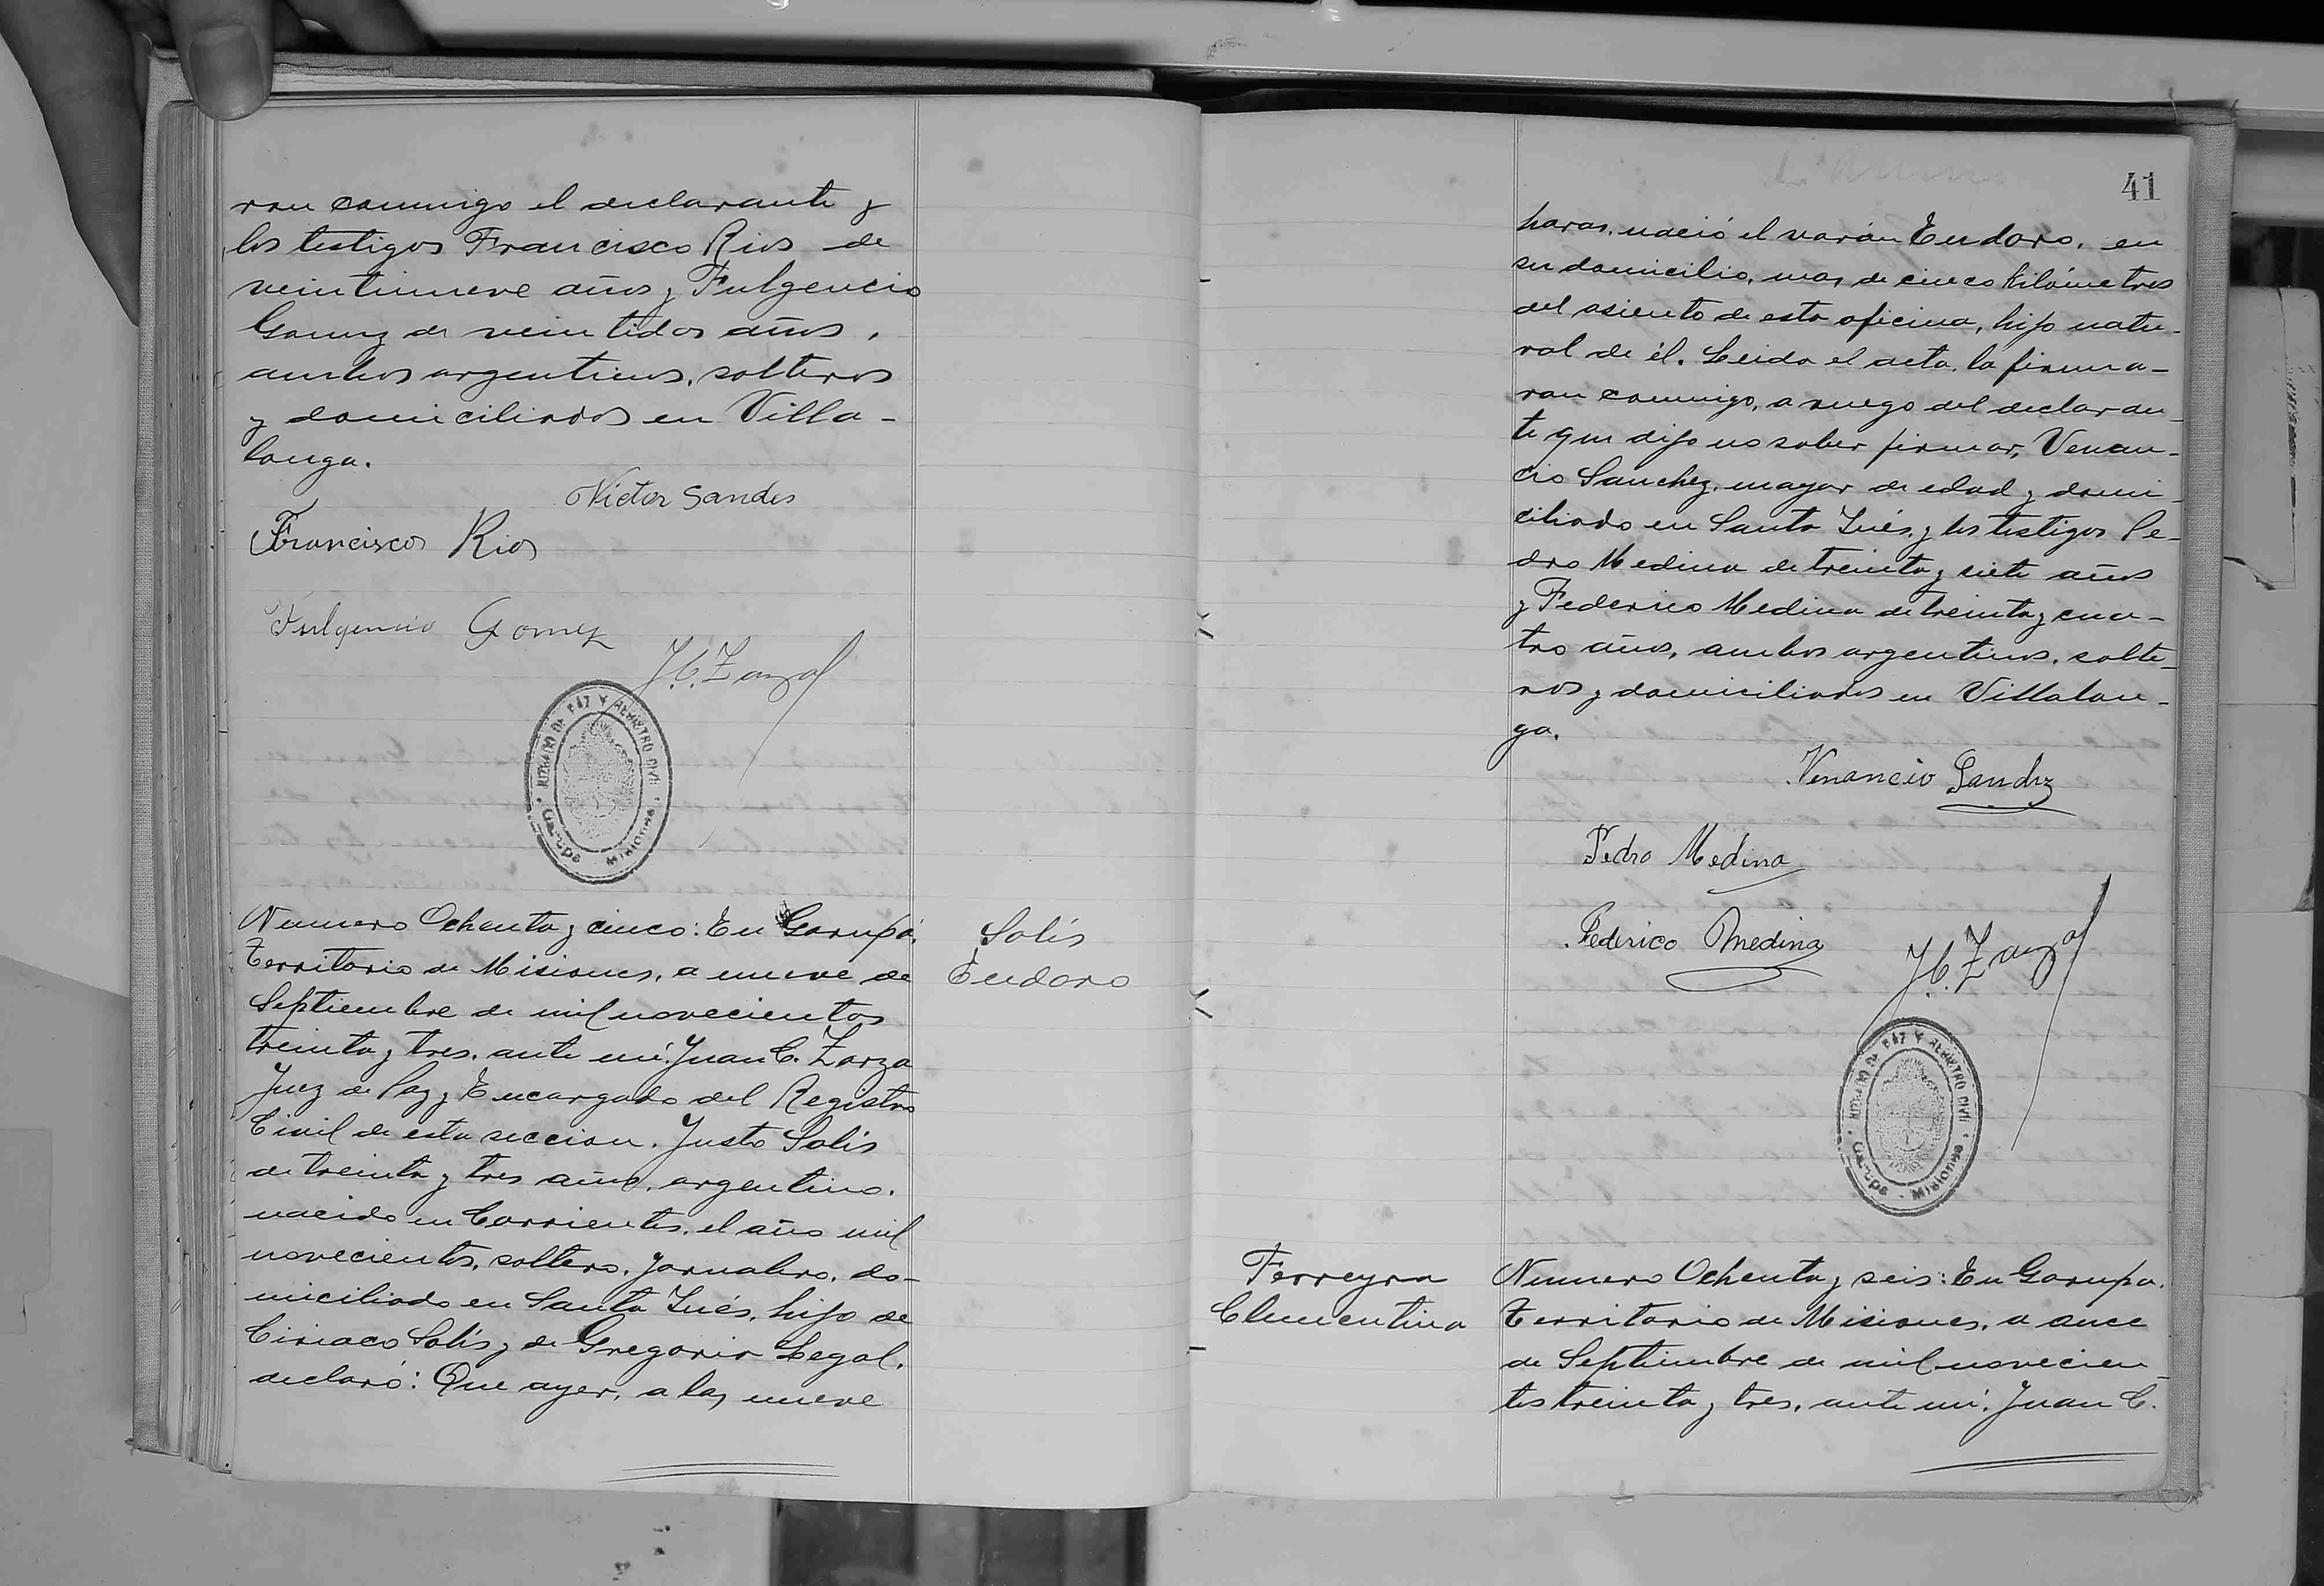 ron conmigo el declarante y
los testigos Francisco Rios de
veintinueve años y Fulgencio
Gomez de veintidos años,
ambos argentinos, solteros
y domiciliados en Villa-
longa.
Victor Sandes
Francisco Rios
Fulgencio Gomez
J.C. Zarza
JUZGADO DE PAZ Y REGISTRO CIVIL
Garupá - Misiones
Numero Ochenta y cinco: En Garupá,
Territorio de Misiones, a nueve de
Septiembre de mil novecientos
treinta y tres, ante mí: Juan C. Zarza
Juez de Paz y Encargado del Registro
Civil de esta seccion. Justo Solis
de treinta y tres años, argentino,
nacido en Corrientes, el año mil
novecientos, soltero, jornalero, do-
miciliado en Santa Inés, hijo de
Ciriaco Solís y de Gregoria Legal,
declaró: Que ayer, a las nueve
Solís
Eudoro
41
horas, nació el varón Eudoro, en
su domicilio, mas de cinco kilómetros
del asiento de esta oficina, hijo natu-
ral de él. Leida el acta, la firma-
ron conmigo, a ruego del declaran-
te que dijo no saber firmar, Venan-
cio Sanchez, mayor de edad y domi-
ciliado en Santa Inés, y los testigos Pe-
dro Medina de treinta y siete años
y Federico Medina de treinta y cua-
tro años, ambos argentinos, solte-
ros y domiciliados en Villalon-
ga.
Venancio Sanchz
Pedro Medina
Federico Medina
J.C. Zarza
JUZGADO DE PAZ Y REGISTRO CIVIL
Garupá - Misiones
Ferreyra
Clementina
Numero Ochenta y seis: En Garupa,
Territorio de Misiones, a once
de Septiembre de mil novecien-
tos treinta y tres, ante mí: Juan C.